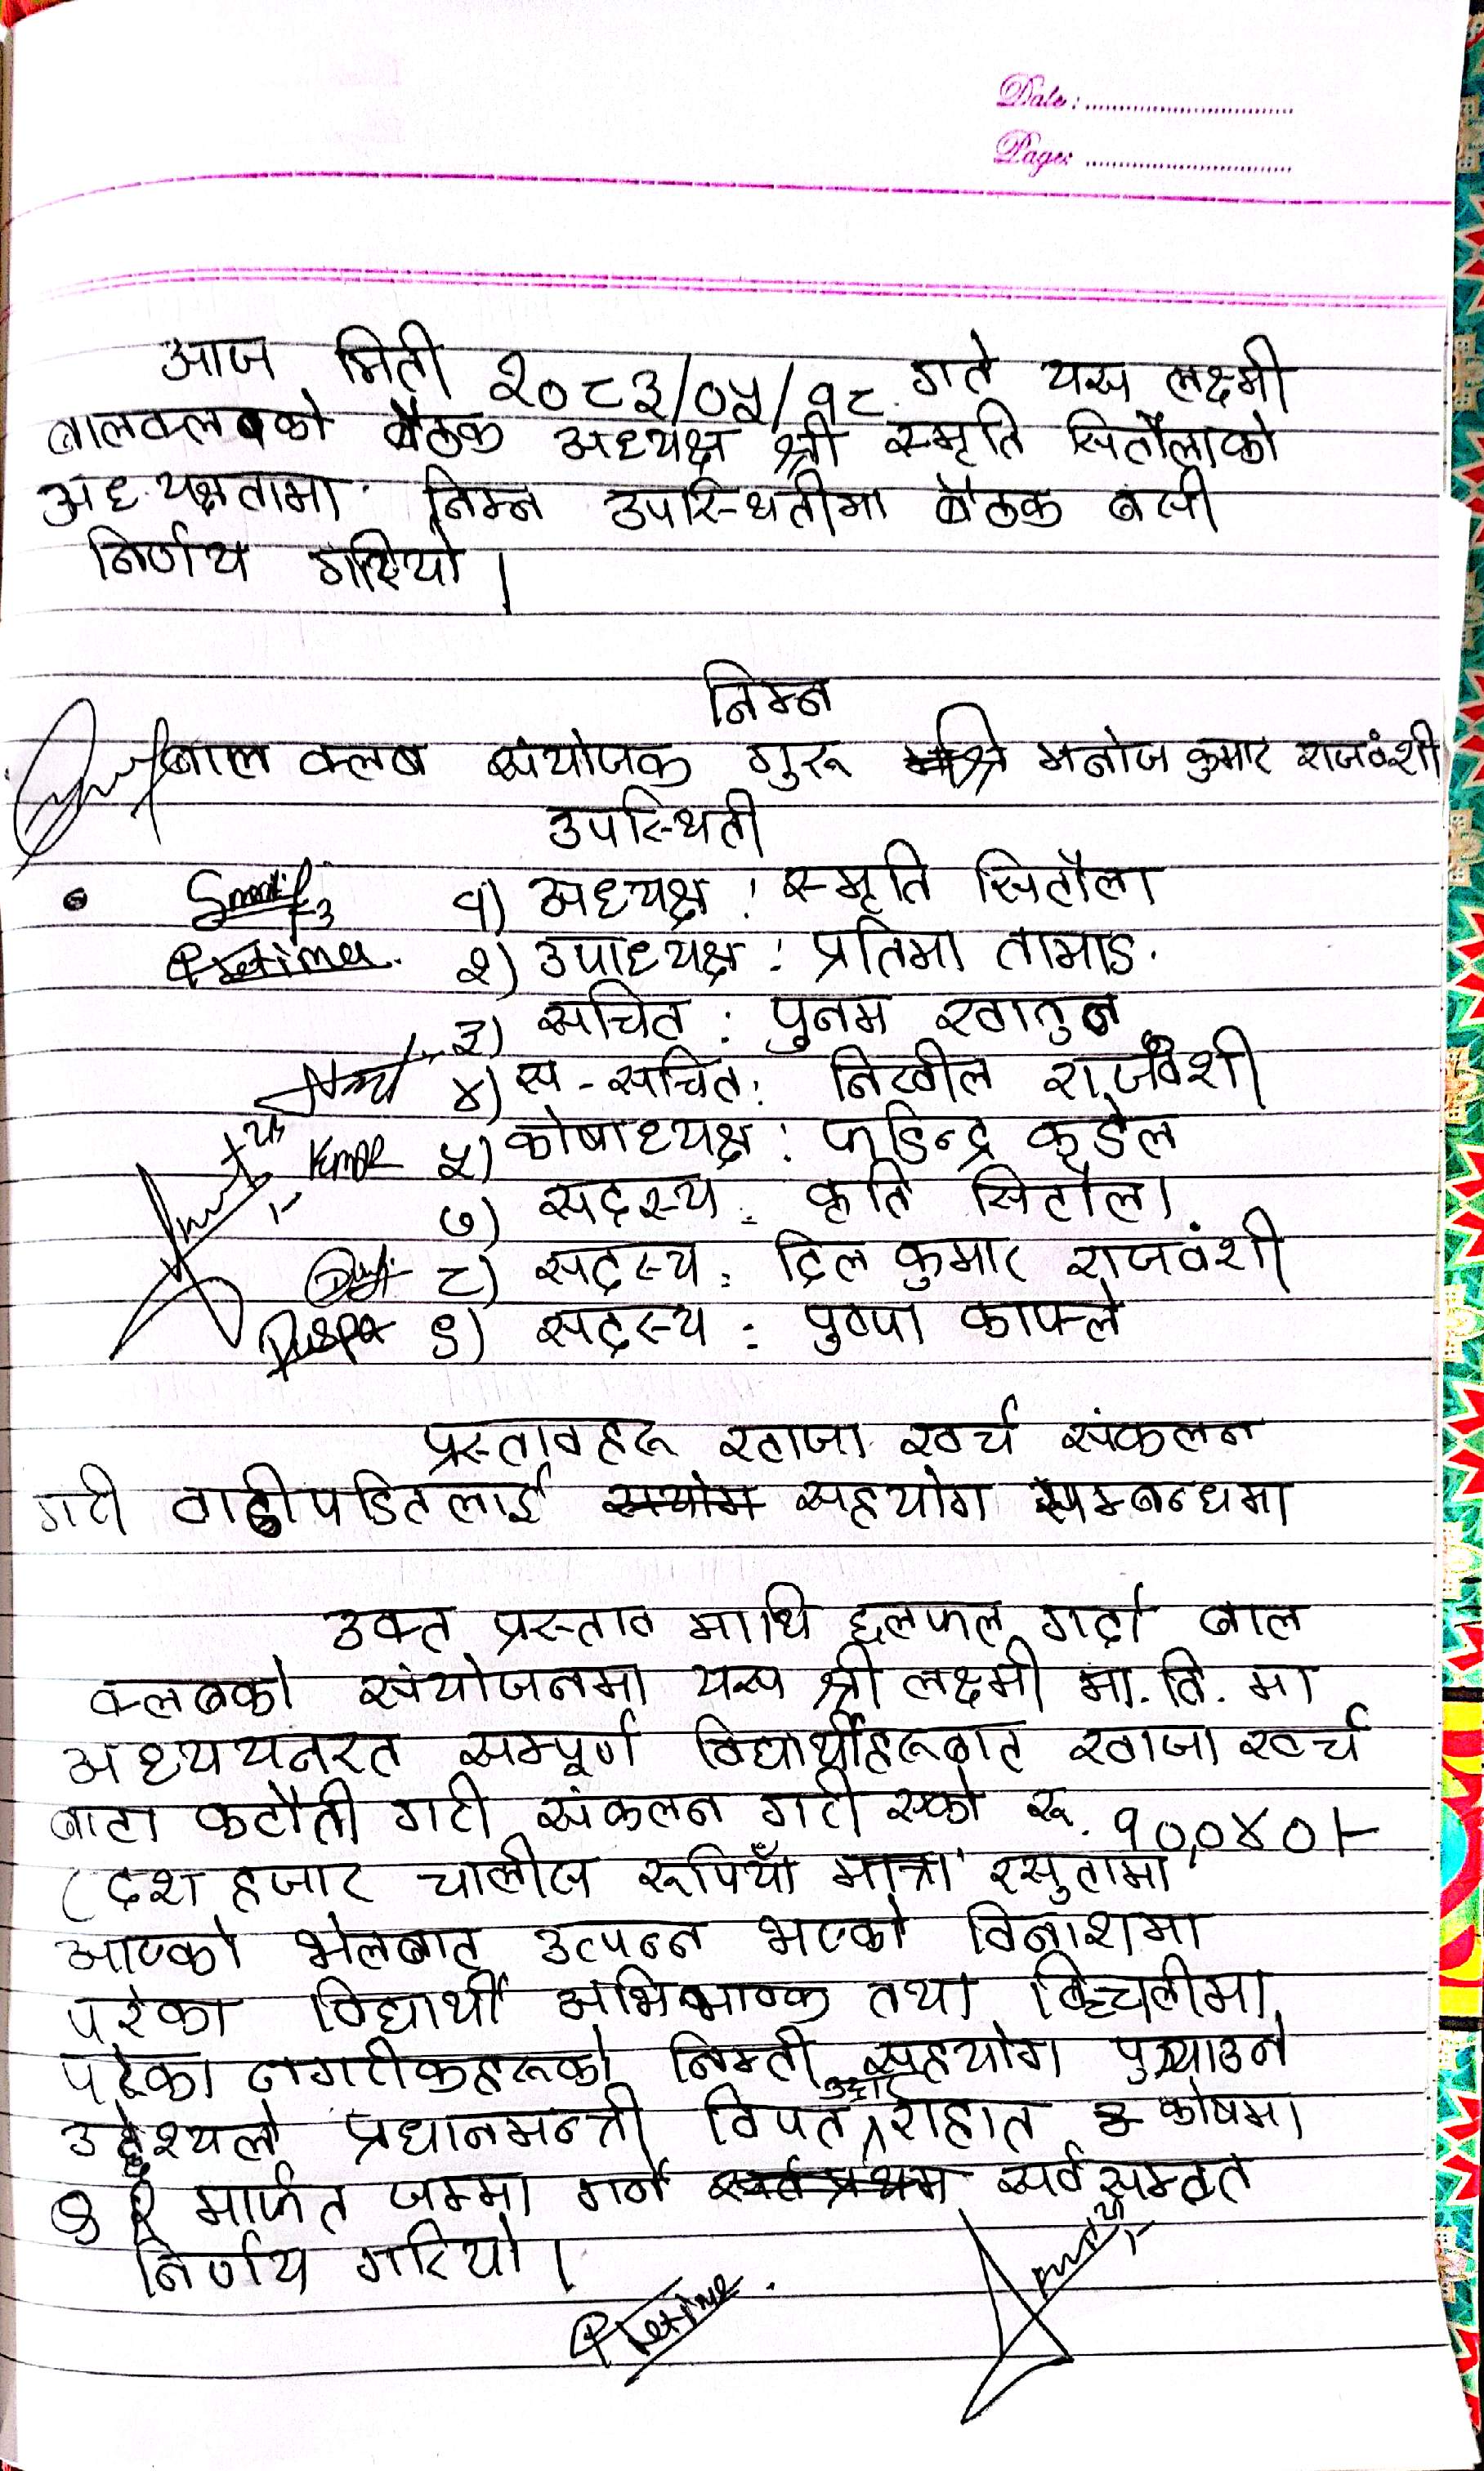 Date :
Page:
आज मिती २०८३/०५/१८ गते यस लक्ष्मी
बालक्लबको बैठक अध्यक्ष श्री स्मृति सितौलाको
अध्यक्षतामा निम्न उपस्थितीमा बैठक बसी
निर्णय गरियो।
निम्न
बाल क्लब संयोजक गुरू श्री मनोज कुमार राजवंशी
उपस्थिती
१) अध्यक्ष : स्मृति सितौला
Pratima. २) उपाध्यक्ष : प्रतिमा तामाङ.
३) सचिव : पुनम खातुन
४) स-सचिव: निखील राजवंशी
५) कोषाध्यक्ष : फडिन्द्र कडेल
७) सदस्य : कृति सितौला
८) सदस्य : दिल कुमार राजवंशी
Puspa ९) सदस्य : पुष्पा काफ्ले
प्रस्तावहरू खाजा खर्च संकलन
गरी बाढीपडितलाई सहयोग सम्बन्धमा
उक्त प्रस्ताव माथि छलफल गर्दा बाल
क्लबको संयोजनमा यस श्री लक्ष्मी मा.वि. मा
अध्ययनरत सम्पूर्ण विद्यार्थीहरूबाट खाजा खर्च
बाटा कटौती गरी संकलन गरी एको रू. १०,०४०।-
(दश हजार चालीस रूपियाँ मात्र) रसुवामा
आएको भेलबाट उत्पन्न भएको विनाशमा
परेका विद्यार्थी अभिभावक तथा विचलीमा
परेका नगरीकहरूको निम्ती सहयोग पुर्‍याउने
उद्देश्यले प्रधानमन्त्री विपत उद्दार राहात कोषमा
मार्फत जम्मा गर्ने सर्वसम्वत
निर्णय गरियो।
Pratima.